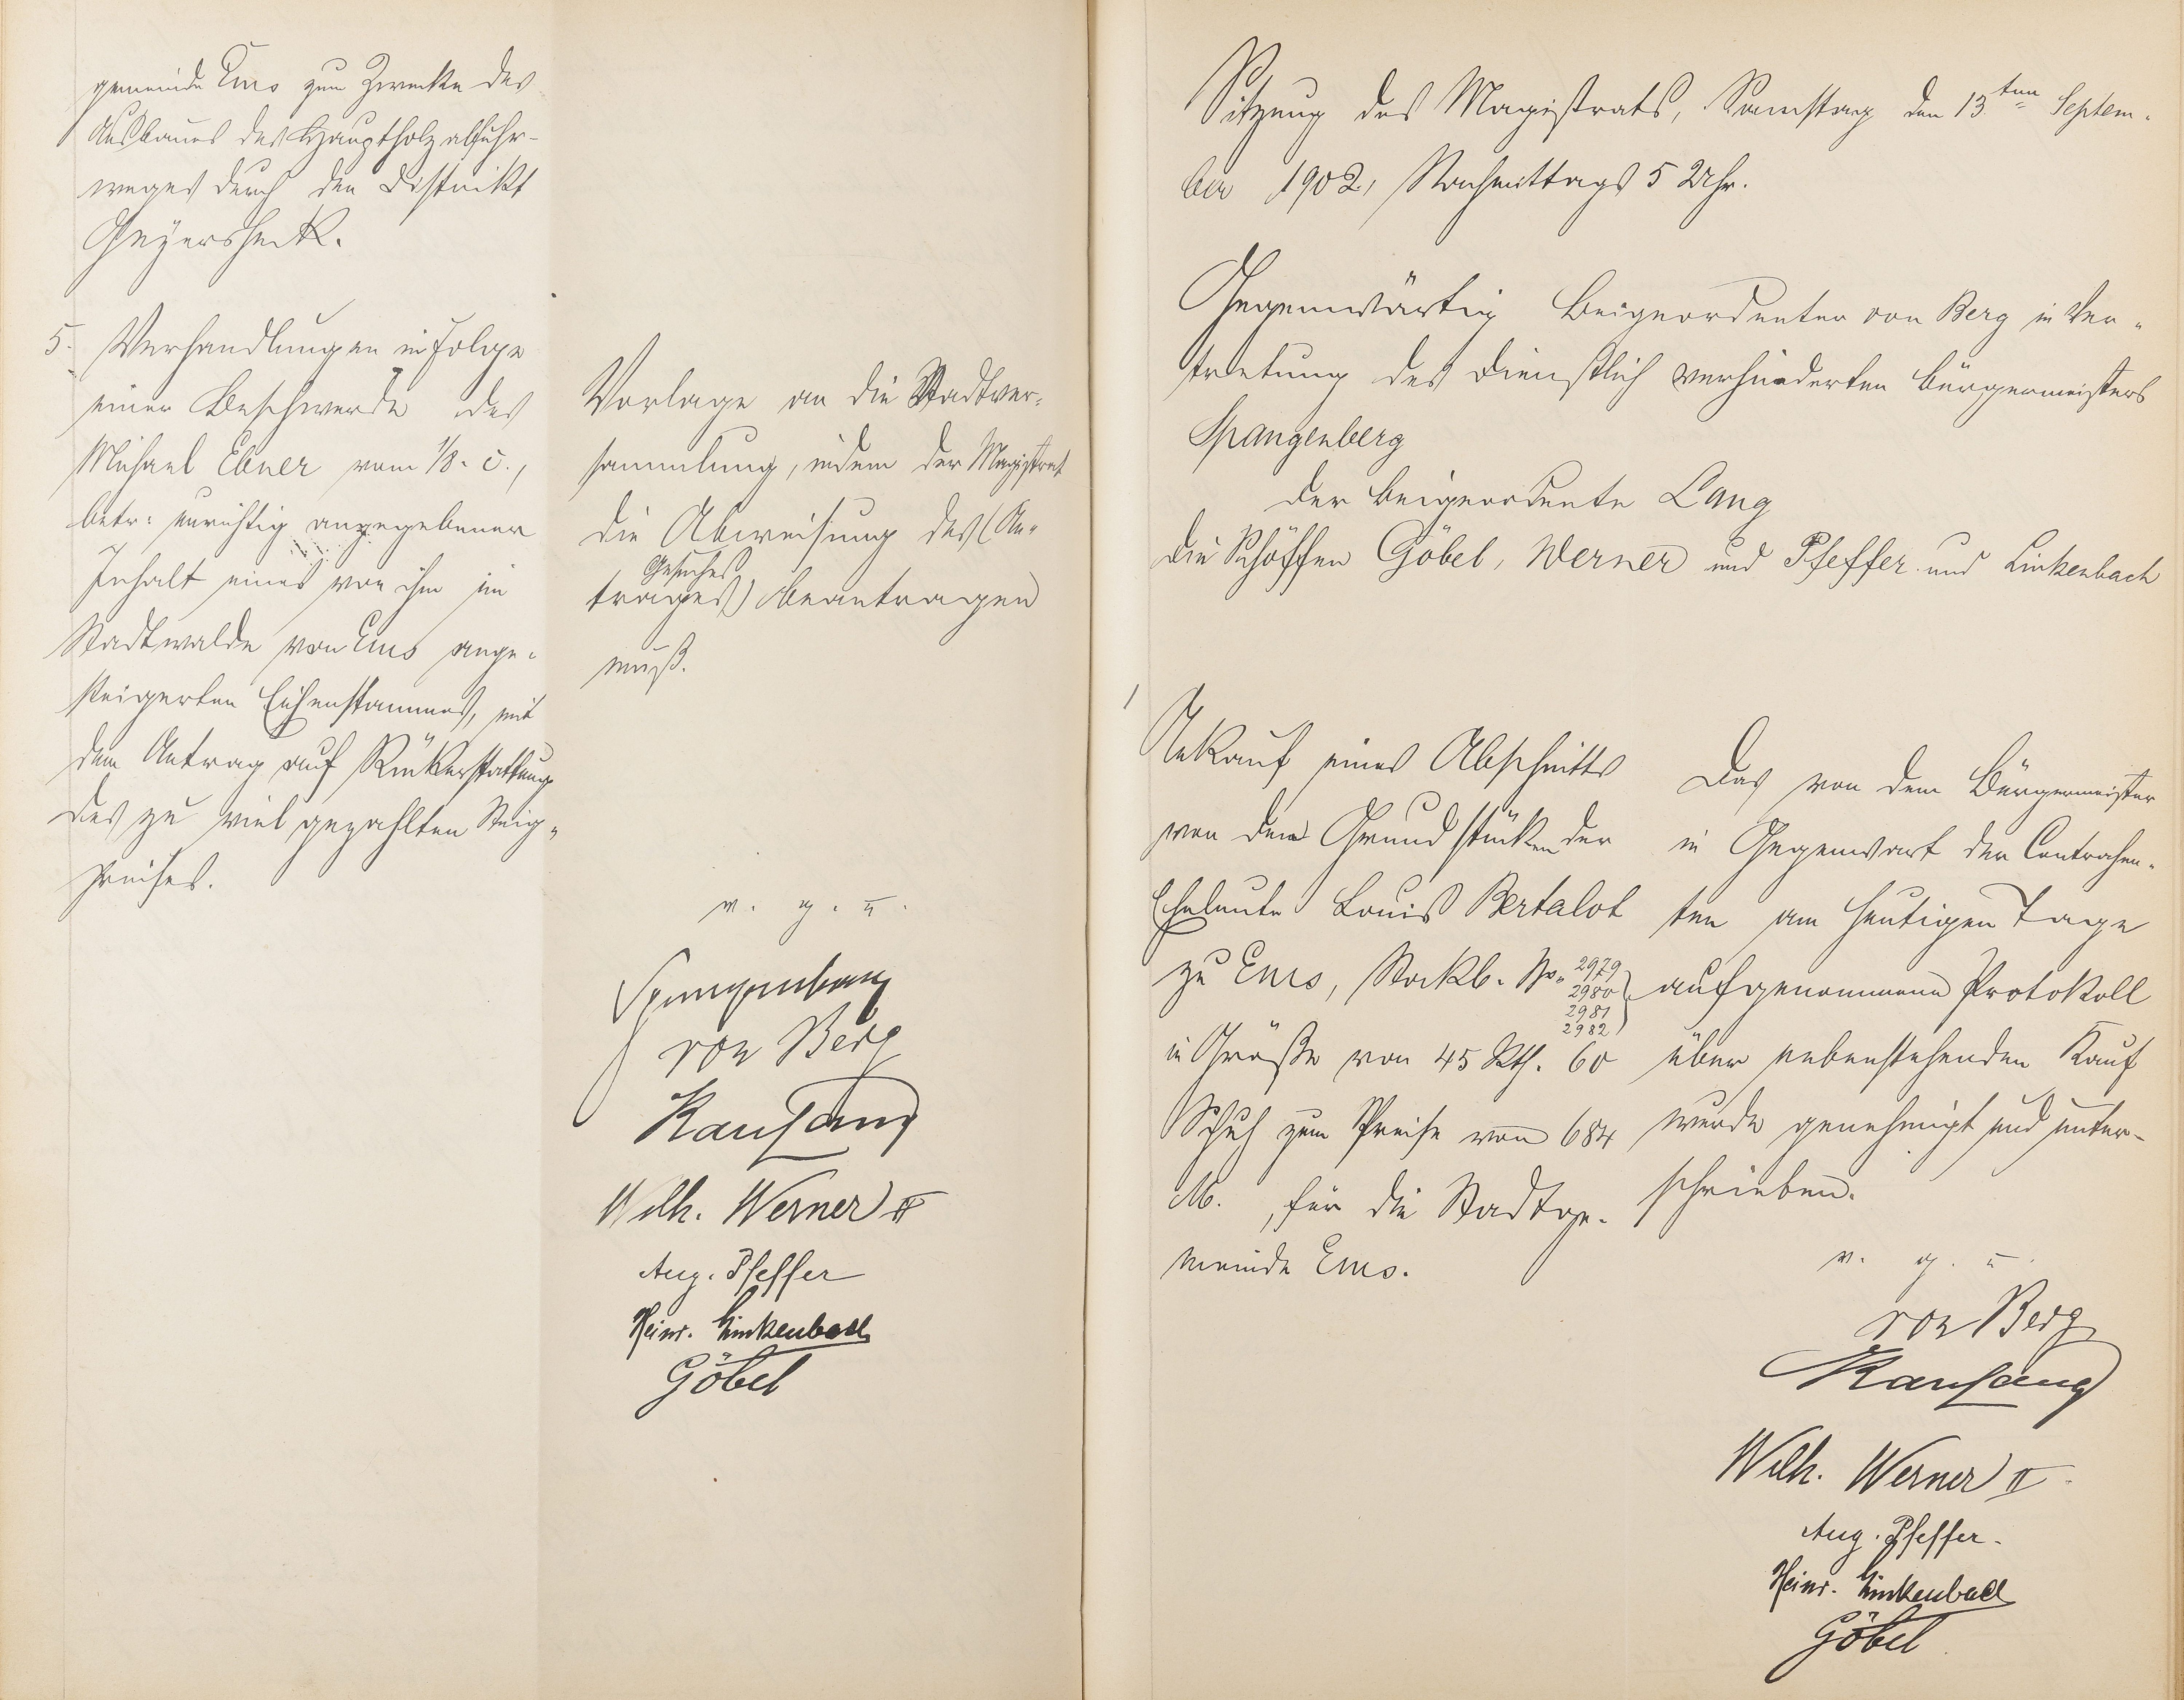 gemeinde Ems zum Zwecke des
Ausbaues des Hauptholzabfuhr-
weges durch den Distrikt
Geyersheck.
5. Verhandlungen in Folge
einer Beschwerde des
Michael Ebner vom 1/8. c.,
betr: unrichtig angegebener
Inhalt eines von ihm im
Stadtwalde von Ems ange-
steigerten Eichenstammes, mit
dem Antrag auf Rückerstattung
des zu viel gezahlten Steig-
preises.
Vorlage an die Stadtver-
sammlung, indem der Magistrat
die Abweisung des (An-
Gesuches
trages) beantragen
muß.
v. g. u.
Spangenberg
von Berg
Karl Lang
Wilh. Werner II
Aug. Pfeffer
Heinr. Linkenbach
Göbel
Sitzung des Magistrats, Samstag den 13ten Septem-
ber 1902, Nachmittags 5 Uhr.
Gegenwärtig Beigeordneter von Berg in Ver-
tretung des dienstlich verhinderten Bürgermeisters
Spangenberg
der Beigeordnete Lang
die Schöffen Göbel, Werner und Pfeffer und Linkenbach
1
Ankauf eines Abschnitts
von den Grundstücken der
Eheleute Louis Bertalot
zu Ems, Stockb. No. 2979
2980
2981
2982
in Größe von 45 Rth. 60
Schuh zum Preise von 684
M., für die Stadtge-
meinde Ems.
Das von dem Bürgermeister
in Gegenwart der Contrahen-
ten am heutigen Tage
aufgenommene Protokoll
über nebenstehenden Kauf
wurde genehmigt und unter-
schrieben.
v. g. u.
von Berg
Karl Lang
Wilh. Werner II
Aug. Pfeffer.
Heinr. Linkenbach
Göbel